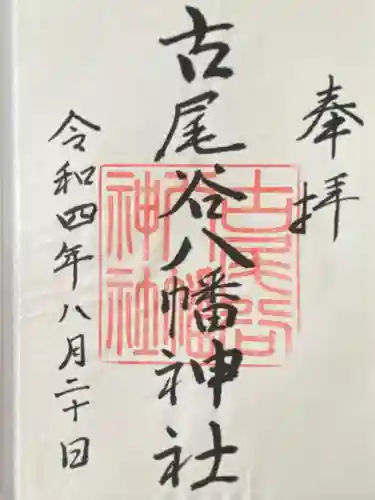 奉拝
古尾谷八幡神社
古尾谷八幡神社
令和四年八月二十日